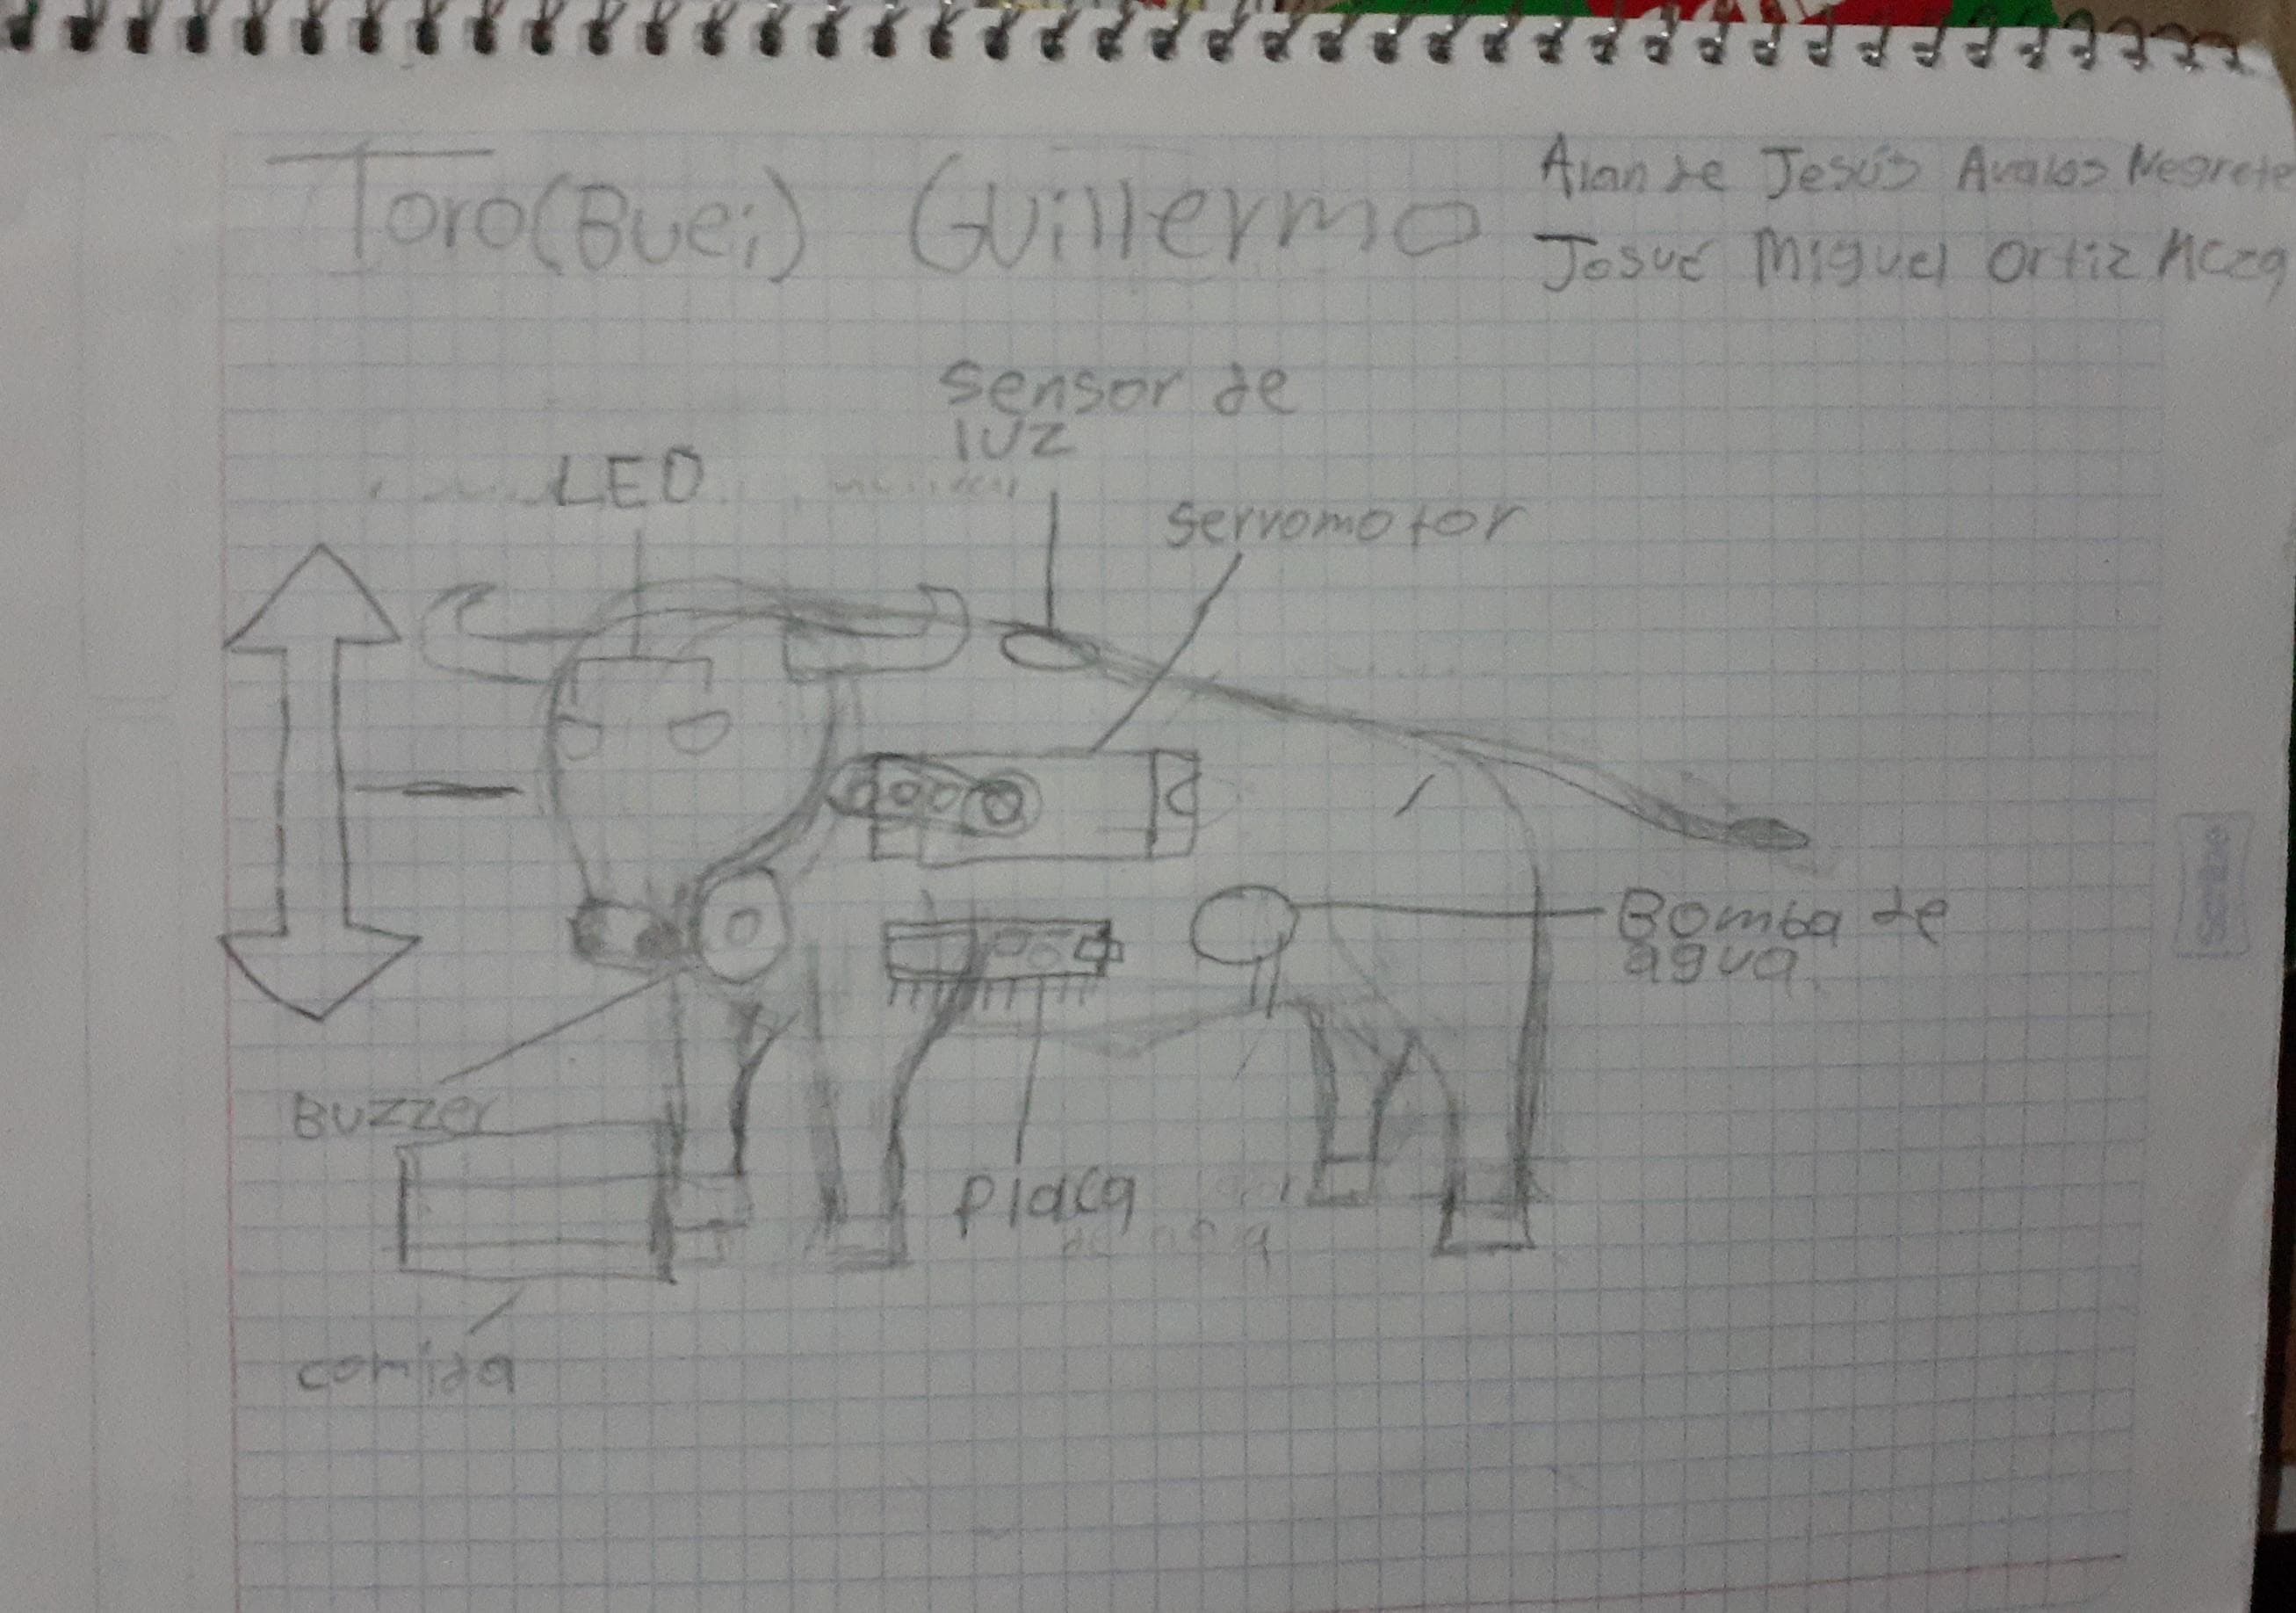 Toro(Buei) Guillermo
Alan de Jesús Avalos Negrete
Josué Miguel Ortiz
sensor de
luz
LED
servomotor
Bomba de
agua
Buzzer
placa
comida
Scribe